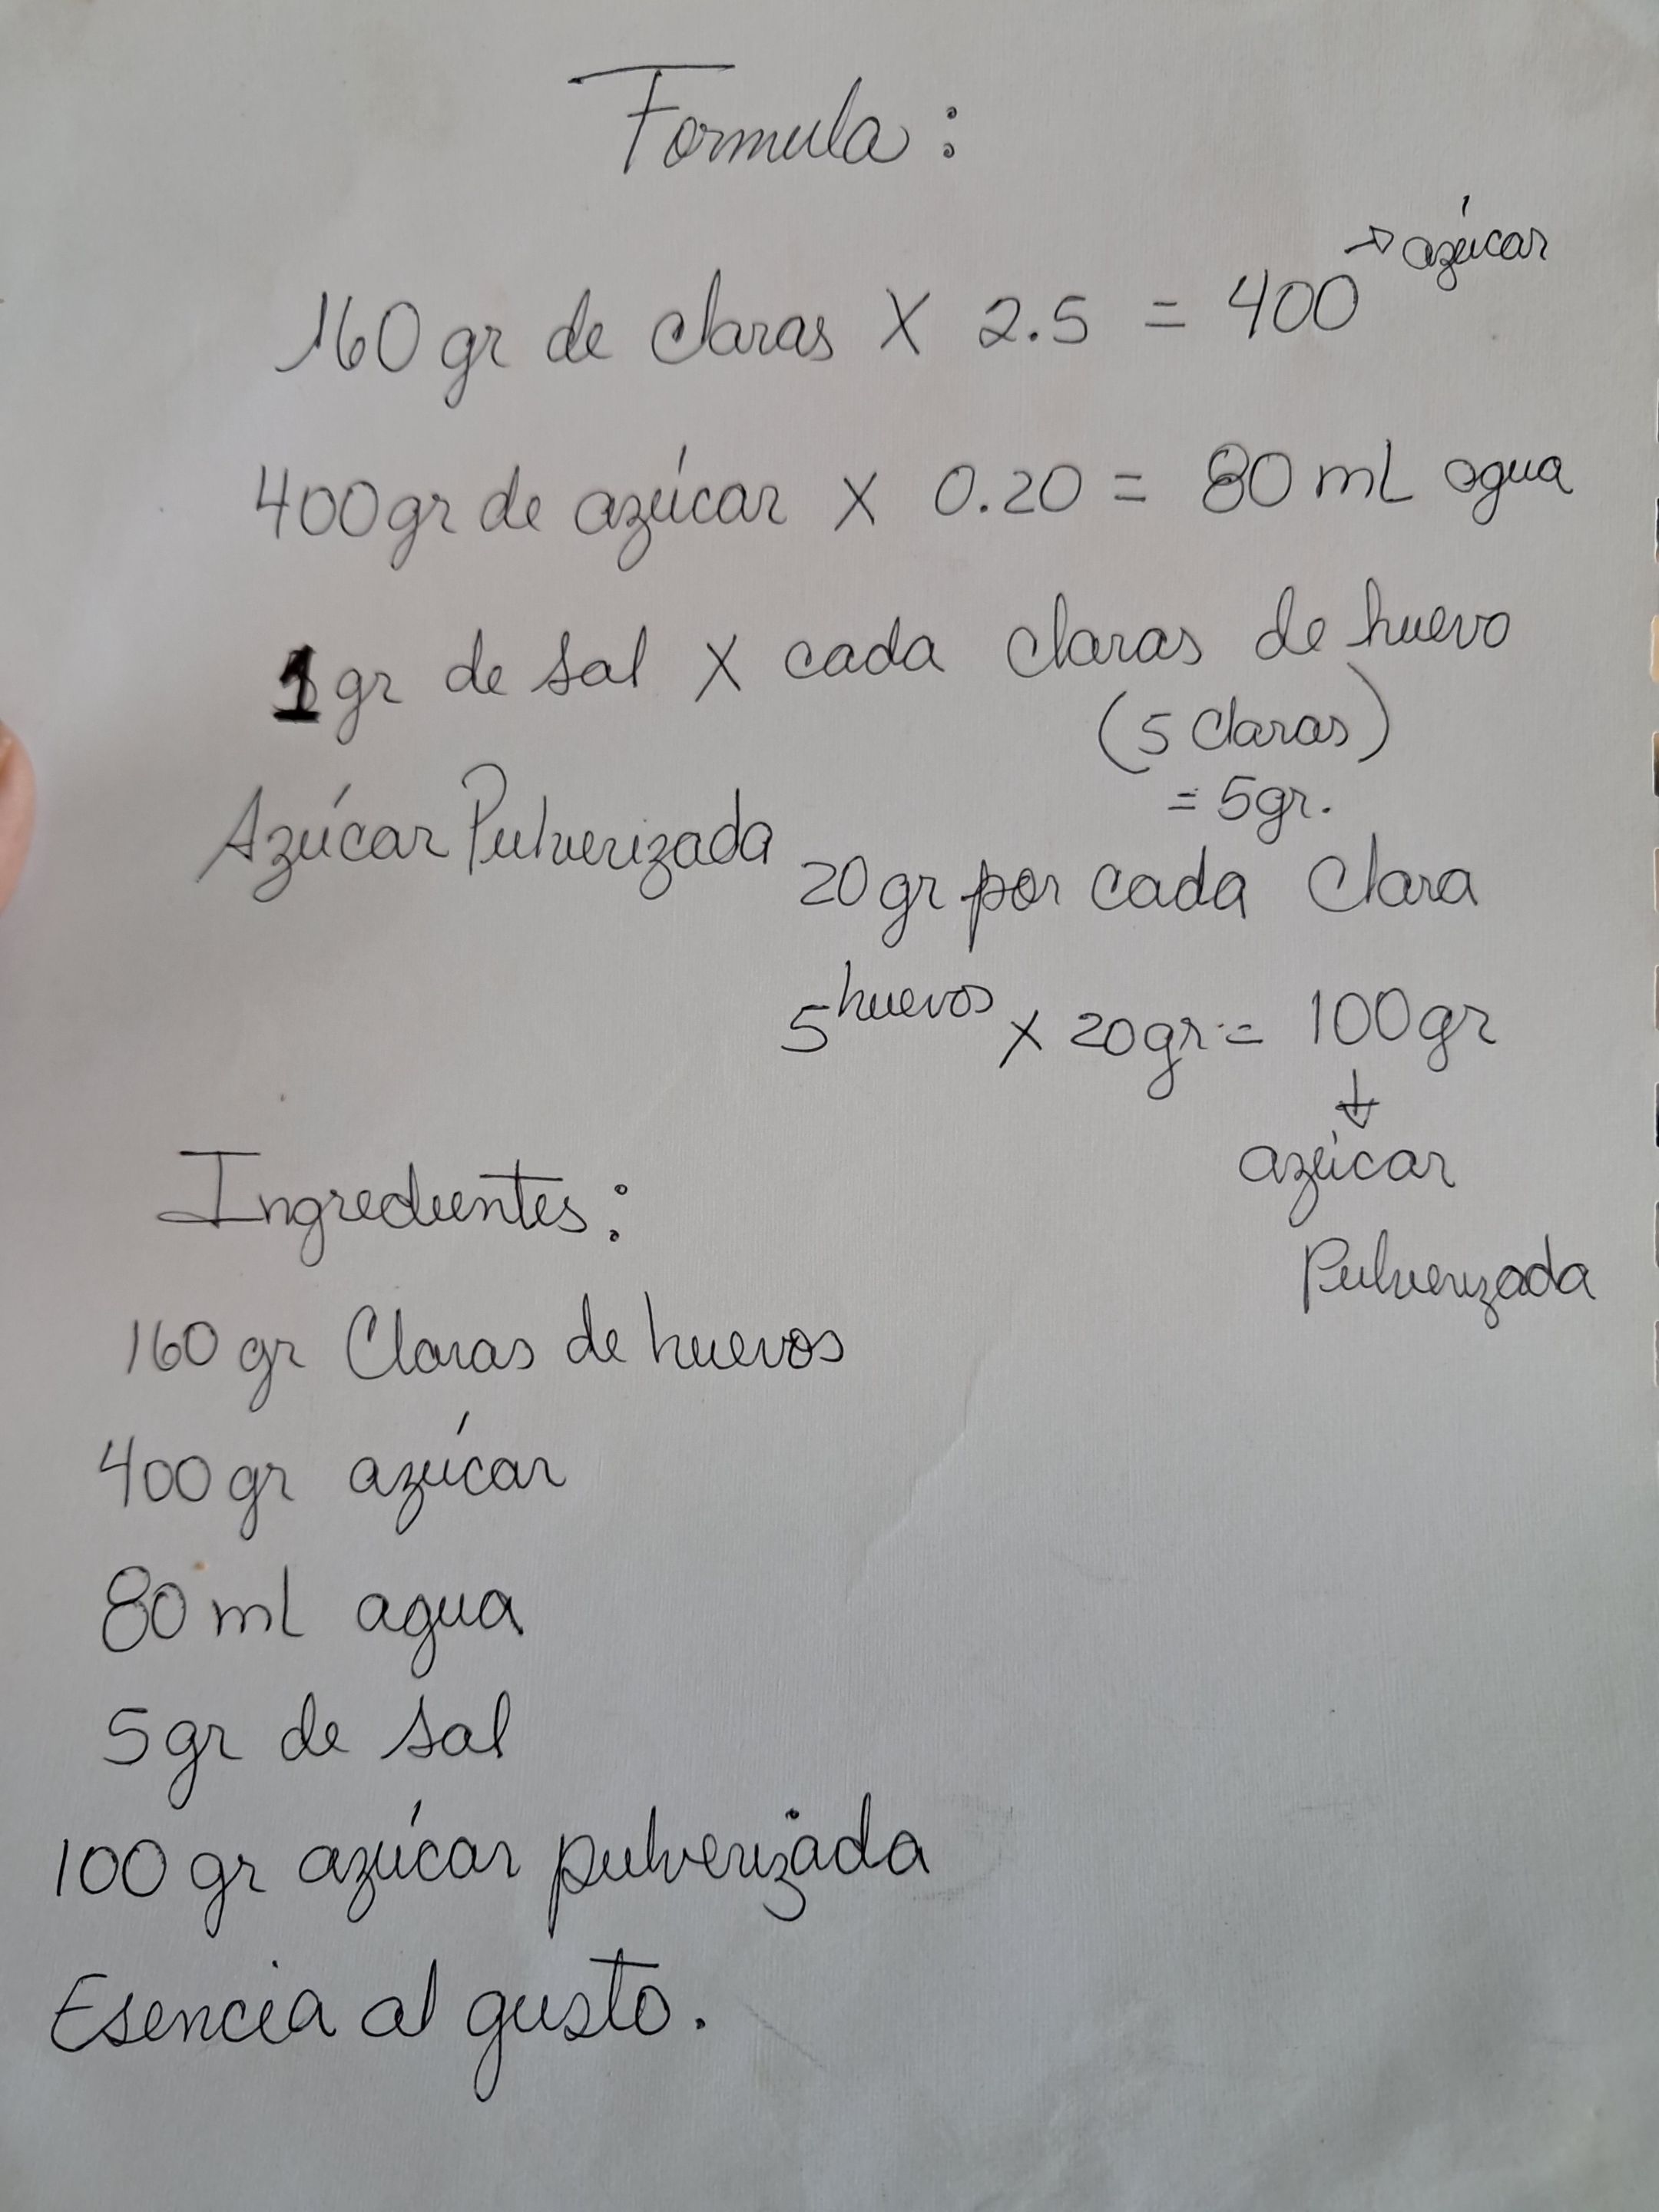 Formula:
160 gr de claras X 2.5 = 400 → azúcar
400gr de azúcar X 0.20 = 80 mL agua
1gr de sal X cada claras de huevo
(5 Claras)
= 5gr.
Azúcar Pulverizada 20gr por cada Clara
5 huevos X 20gr = 100gr
↓
azúcar
Pulverizada
Ingredientes:
160 gr Claras de huevos
400 gr azúcar
80 ml agua
5 gr de sal
100 gr azúcar pulverizada
Esencia al gusto.